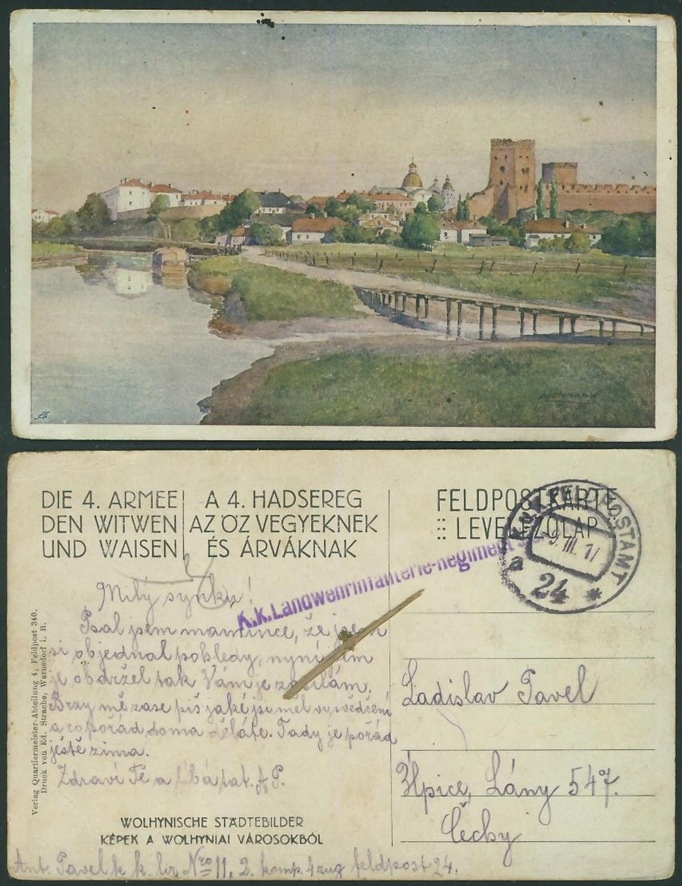 DIE 4. ARMEE
DEN WITWEN
UND WAISEN
A 4. HADSEREG
AZ ÖZVEGYEKNEK
ÉS ÁRVÁKNAK
FELDPOSTKARTE
LEVELEZŐLAP
K.u.K. FELDPOSTAMT
9. III. 17
a 24 *
K.k. Landwehrinfanterie-Regiment
Milý synku!
Psal jsem mamince, že jsem
si objednal pohledy, nyní jsem
je obdržel tak Vám je zasílám.
Brzy mě zase piš jaké jsi měl vysvědčení
a co pořád doma děláte. Tady je pořád
ještě zima.
Zdraví Tě a líbá tat. A. P.
Ladislav Pavel
Lány 547.
Čechy
Verlag Quartiermeister-Abteilung 4, Feldpost 340.
Druck von Ed. Strache, Warnsdorf i. B.
WOLHYNISCHE STÄDTEBILDER
KÉPEK A WOLHYNIAI VÁROSOKBÓL
Ant. Pavel k. k. lir Nro 11, 2. komp. 4 zug feldpost 24.